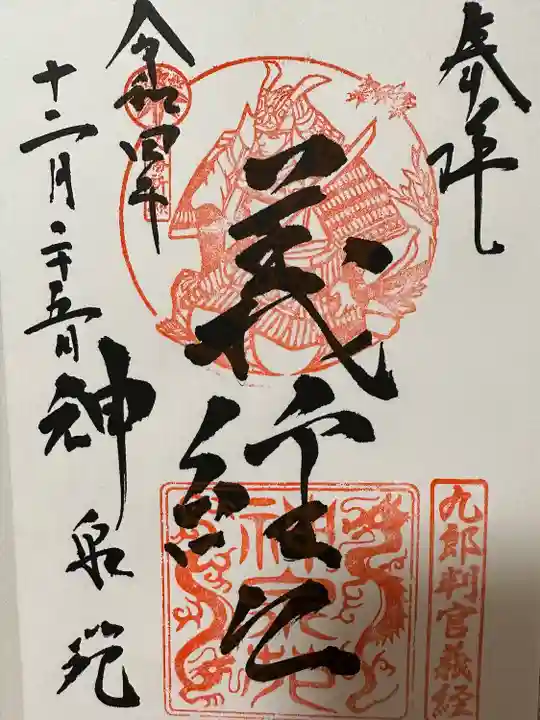 奉拝
義経公
九郎判官義経
神泉苑
令和四年
十二月二十五日
神泉苑